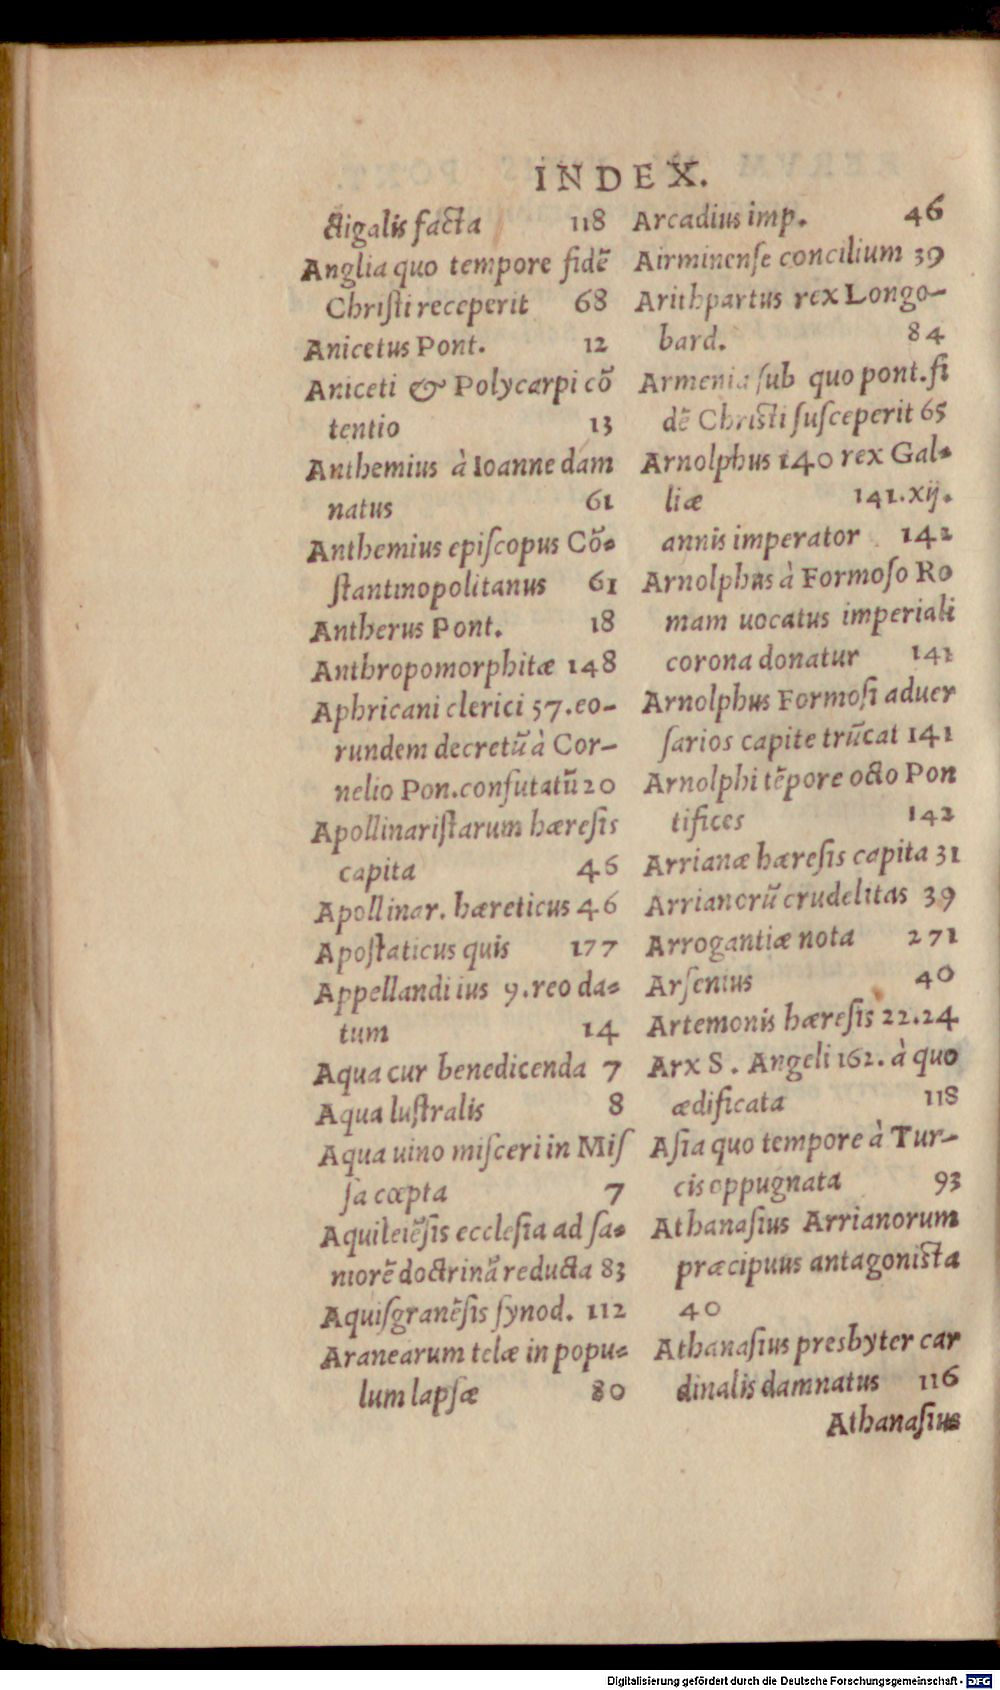 INDEX.
ctigalis facta 118
Anglia quo tempore fidē
Chriſti receperit 68
Anicetus Pont. 12
Aniceti & Polycarpi cō
tentio 13
Anthemius à Ioanne dam
natus 61
Anthemius epiſcopus Cō-
ſtantinopolitanus 61
Antherus Pont. 18
Anthropomorphitæ 148
Aphricani clerici 57. eo-
rundem decretū à Cor-
nelio Pon. confutatū 20
Apollinariſtarum hæreſis
capita 46
Apollinar. hæreticus 46
Apoſtaticus quis 177
Appellandi ius 9. reo da-
tum 14
Aqua cur benedicenda 7
Aqua luſtralis 8
Aqua uino miſceri in Miſ
ſa cœpta 7
Aquileiēſis eccleſia ad ſa-
niorē doctrinā reducta 83
Aquiſgranēſis ſynod. 112
Aranearum telæ in popu-
lum lapſæ 80
Arcadius imp. 46
Airminenſe concilium 39
Arithpartus rex Longo-
bard. 84
Armenia ſub quo pont. fi
dē Chriſti ſuſceperit 65
Arnolphus 140 rex Gal-
liæ 141. xij.
annis imperator 142
Arnolphus à Formoſo Ro
mam uocatus imperiali
corona donatur 141
Arnolphus Formoſi aduer
ſarios capite trūcat 141
Arnolphi tēpore octo Pon
tifices 142
Arrianæ hæreſis capita 31
Arrianorū crudelitas 39
Arrogantiæ nota 271
Arſenius 40
Artemonis hæreſis 22.24
Arx S. Angeli 162. à quo
ædificata 118
Aſia quo tempore à Tur-
cis oppugnata 93
Athanaſius Arrianorum
præcipuus antagoniſta
40
Athanaſius presbyter car
dinalis damnatus 116
Athanaſius
Digitalisierung gefördert durch die Deutsche Forschungsgemeinschaft - DFG